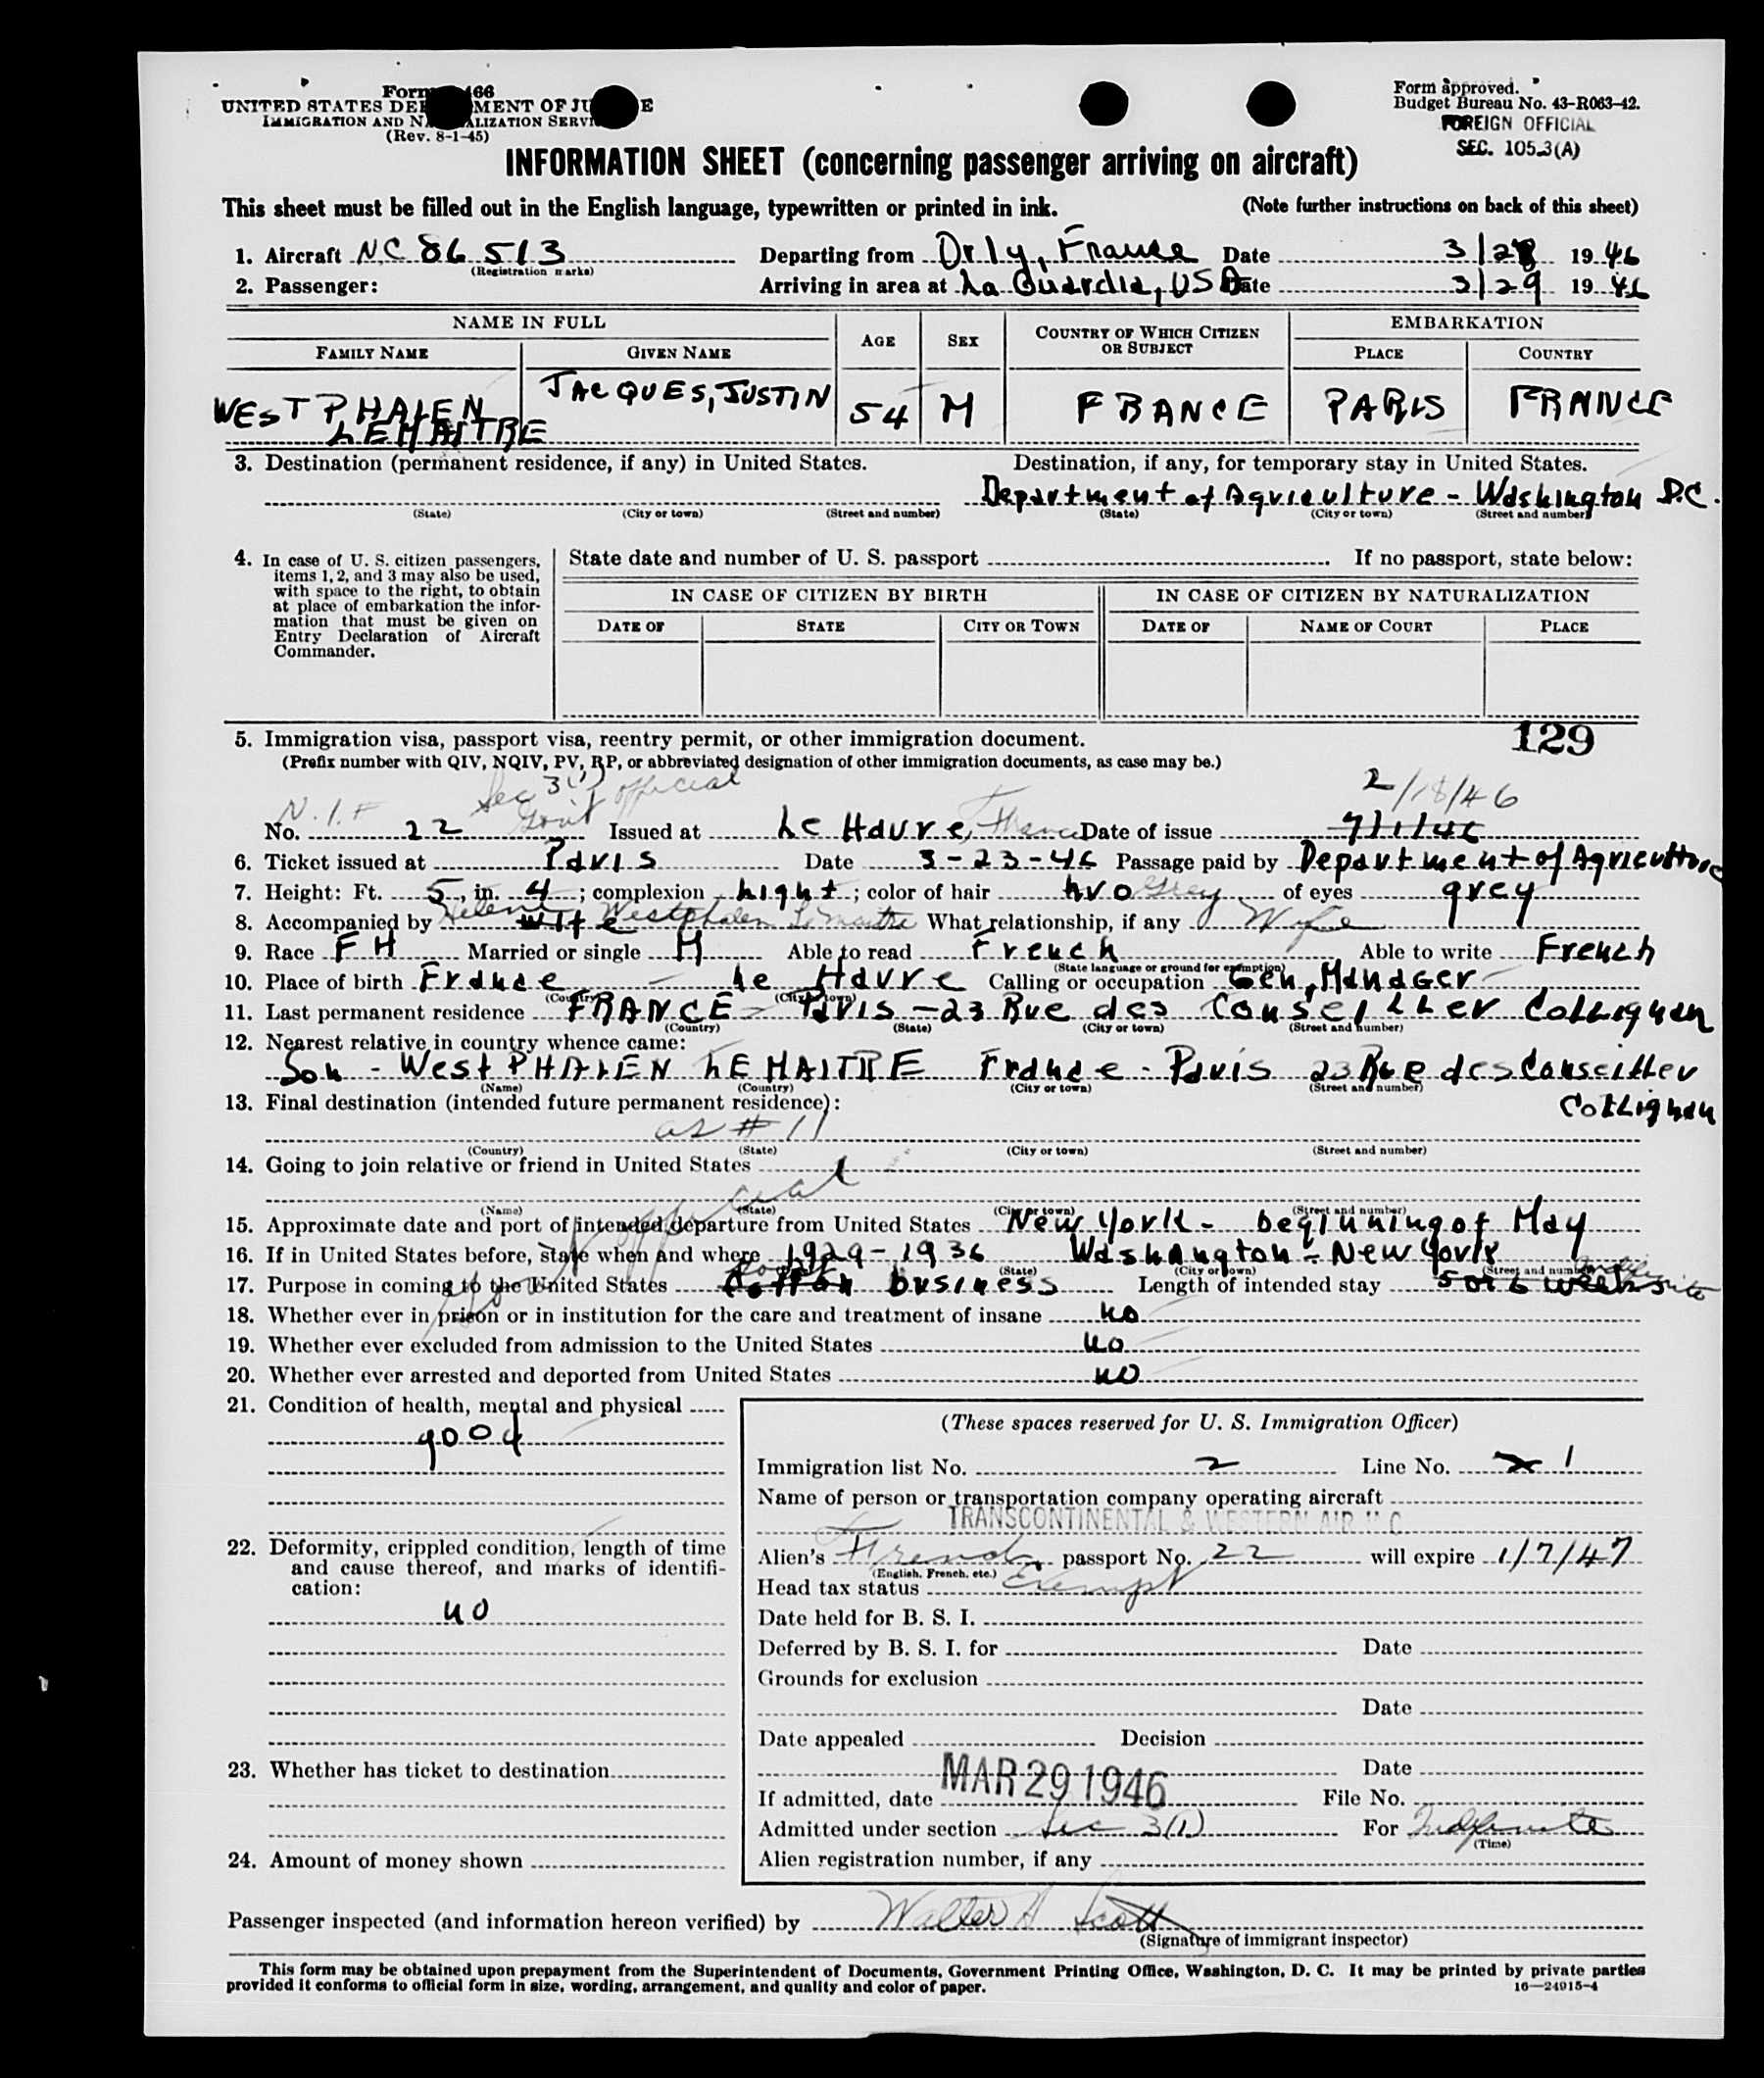 Form 466
UNITED STATES DEPARTMENT OF JUSTICE
IMMIGRATION AND NATURALIZATION SERVICE
(Rev. 8-1-45)
Form approved.
Budget Bureau No. 43-R063-42.
FOREIGN OFFICIAL
SEC. 105.3(A)
INFORMATION SHEET (concerning passenger arriving on aircraft)
This sheet must be filled out in the English language, typewritten or printed in ink. (Note further instructions on back of this sheet)
1. Aircraft NC 86 513 Departing from Orly, France Date 3/28 1946
(Registration marks)
2. Passenger: Arriving in area at La Guardia, USA Date 3/29 1946
NAME IN FULL AGE SEX COUNTRY OF WHICH CITIZEN OR SUBJECT EMBARKATION
FAMILY NAME GIVEN NAME PLACE COUNTRY
WESTPHALEN LEMAITRE JACQUES, JUSTIN 54 M FRANCE PARIS FRANCE
3. Destination (permanent residence, if any) in United States. Destination, if any, for temporary stay in United States.
Department of Agriculture - Washington D.C.
(State) (City or town) (Street and number) (State) (City or town) (Street and number)
4. In case of U. S. citizen passengers, items 1, 2, and 3 may also be used, with space to the right, to obtain at place of embarkation the information that must be given on Entry Declaration of Aircraft Commander.
State date and number of U. S. passport If no passport, state below:
IN CASE OF CITIZEN BY BIRTH IN CASE OF CITIZEN BY NATURALIZATION
DATE OF STATE CITY OR TOWN DATE OF NAME OF COURT PLACE
129
5. Immigration visa, passport visa, reentry permit, or other immigration document.
(Prefix number with QIV, NQIV, PV, RP, or abbreviated designation of other immigration documents, as case may be.)
Sec 3(1) Gov't official
2/18/46
No. 22 Issued at Le Havre, France Date of issue 7/1/46
6. Ticket issued at Paris Date 3-23-46 Passage paid by Department of Agriculture
7. Height: Ft. 5, in. 4; complexion light; color of hair bro Grey of eyes grey
8. Accompanied by wife Helene Westphalen Lemaitre What relationship, if any Wife
9. Race FH Married or single M Able to read French Able to write French
(State language or ground for exemption)
10. Place of birth France - Le Havre Calling or occupation Gen, Manager
(Country) (City or town)
11. Last permanent residence FRANCE - Paris - 23 Rue des Conseiller Collignon
(Country) (State) (City or town) (Street and number)
12. Nearest relative in country whence came:
Son - WestPHALEN LEMAITRE France - Paris 23 Rue des Conseiller Collignon
(Name) (Country) (City or town) (Street and number)
13. Final destination (intended future permanent residence):
as # 11
(Country) (State) (City or town) (Street and number)
14. Going to join relative or friend in United States
Gov't official
(Name) (State) (City or town) (Street and number)
15. Approximate date and port of intended departure from United States New York - beginning of May
16. If in United States before, state when and where 1929-1936 Washington - New York
(State) (City or town) (Street and number)
17. Purpose in coming to the United States Cotton business Length of intended stay 5 or 6 weeks Indefinite
18. Whether ever in prison or in institution for the care and treatment of insane no
19. Whether ever excluded from admission to the United States no
20. Whether ever arrested and deported from United States no
21. Condition of health, mental and physical
good
22. Deformity, crippled condition, length of time and cause thereof, and marks of identification:
no
23. Whether has ticket to destination
24. Amount of money shown
(These spaces reserved for U. S. Immigration Officer)
Immigration list No. 2 Line No. 1
Name of person or transportation company operating aircraft
TRANSCONTINENTAL & WESTERN AIR INC
Alien's French passport No. 22 will expire 1/7/47
(English, French, etc.)
Head tax status Exempt
Date held for B. S. I.
Deferred by B. S. I. for Date
Grounds for exclusion
Date
Date appealed Decision
Date
If admitted, date MAR 29 1946 File No.
Admitted under section Sec 3(1) For Indefinite
(Time)
Alien registration number, if any
Passenger inspected (and information hereon verified) by Walter A Scott
(Signature of immigrant inspector)
This form may be obtained upon prepayment from the Superintendent of Documents, Government Printing Office, Washington, D. C. It may be printed by private parties
provided it conforms to official form in size, wording, arrangement, and quality and color of paper. 16—24915-4